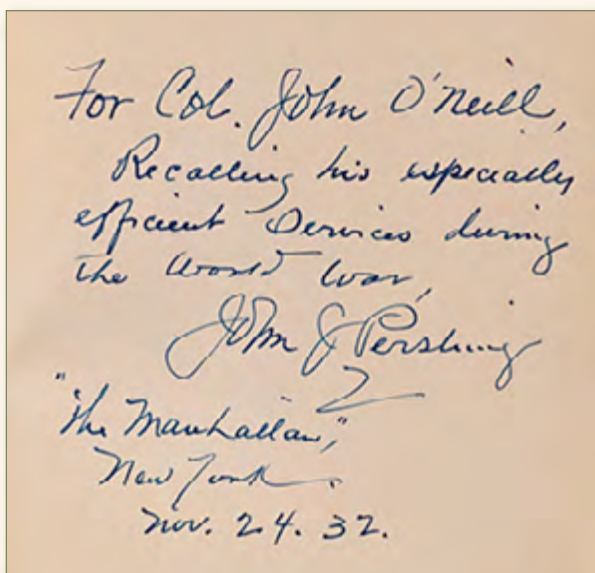 For Col. John O'Neill,
Recalling his especially
efficient services during
the World War,
John J Pershing
"The Manhattan",
New York.
Nov. 24. 32.